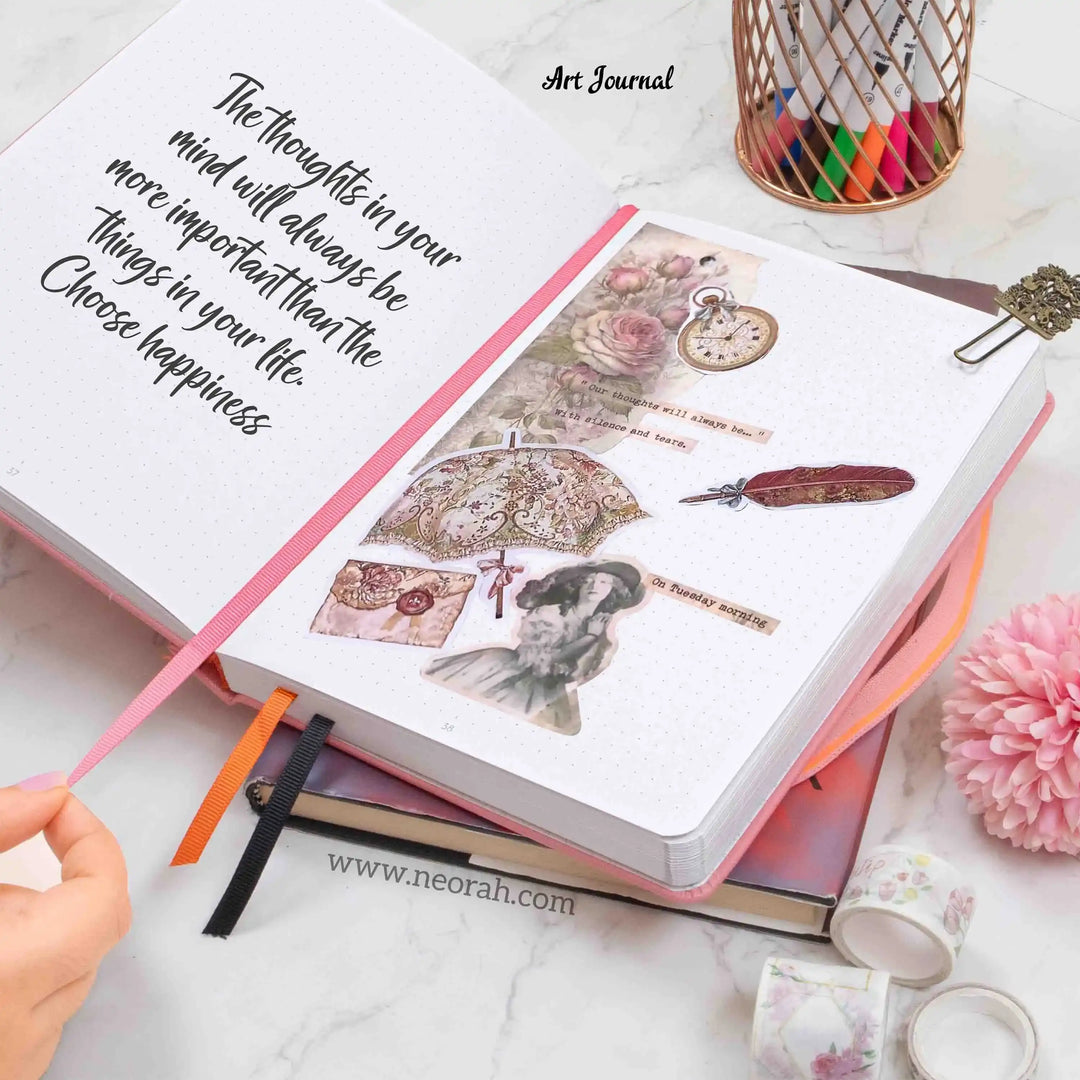 Art Journal
The thoughts in your
mind will always be
more important than the
things in your life.
Choose happiness
57
"Our thoughts will always be... "
With silence and tears.
On Tuesday morning
58
www.neorah.com